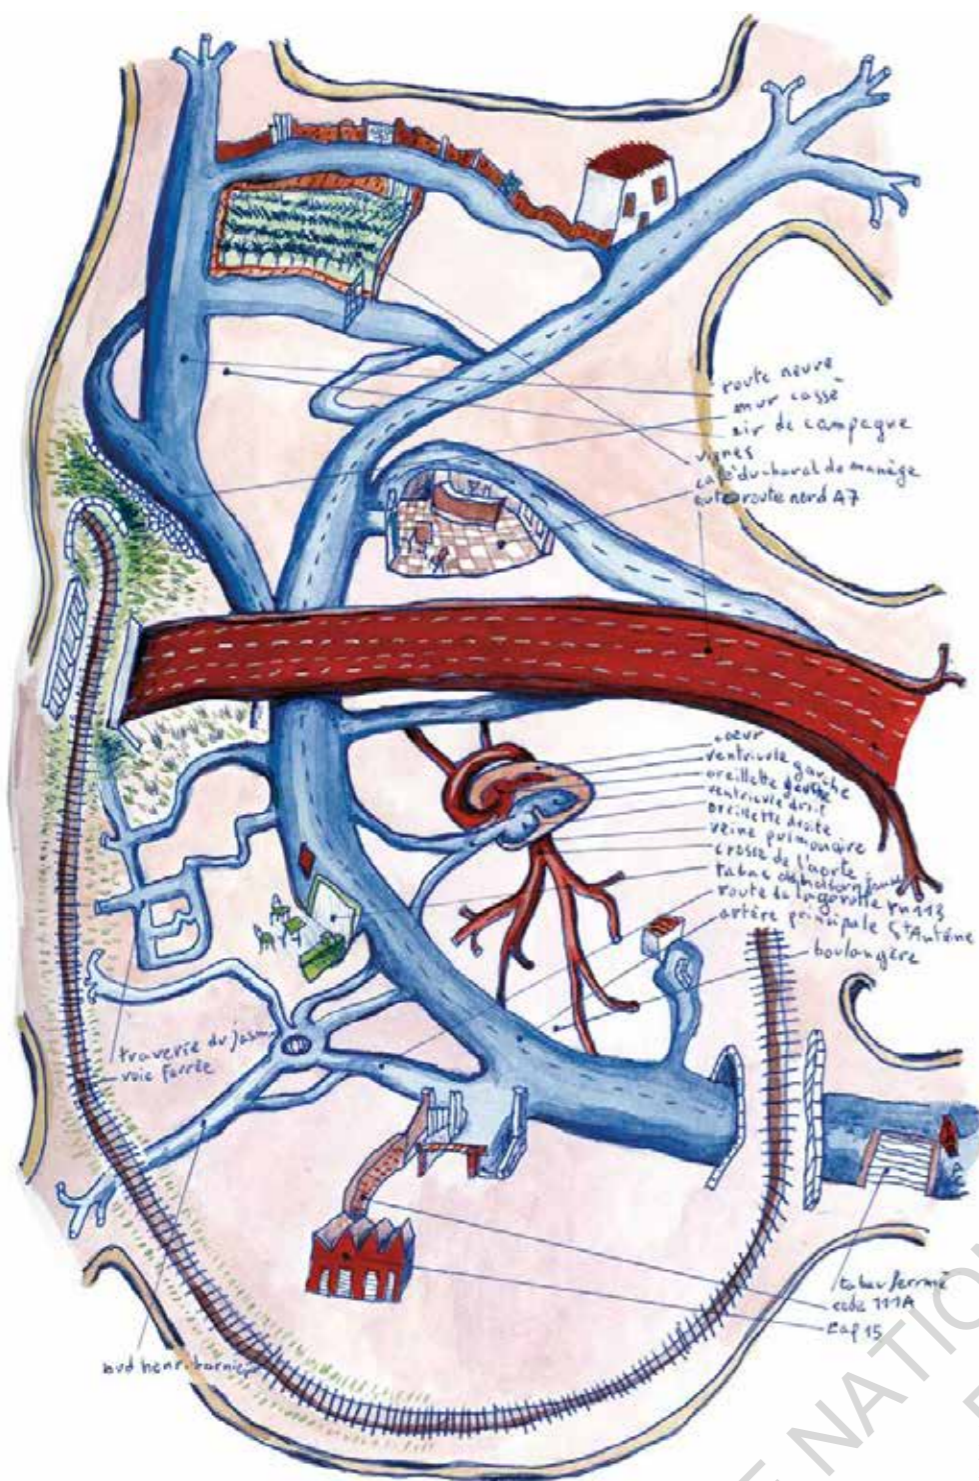 route neuve
mur cassé
air de campagne
vignes
café du cheval de manège
autoroute nord A7
cœur
ventricule gauche
oreillette gauche
ventricule droit
oreillette droite
veine pulmonaire
crosse de l'aorte
tabac
route de la gavotte RN113
artère principale St Antoine
boulangère
traverse du jasm
voie ferrée
tabac fermé
111A
Cap 15
bvd henri barnier
E NATIO